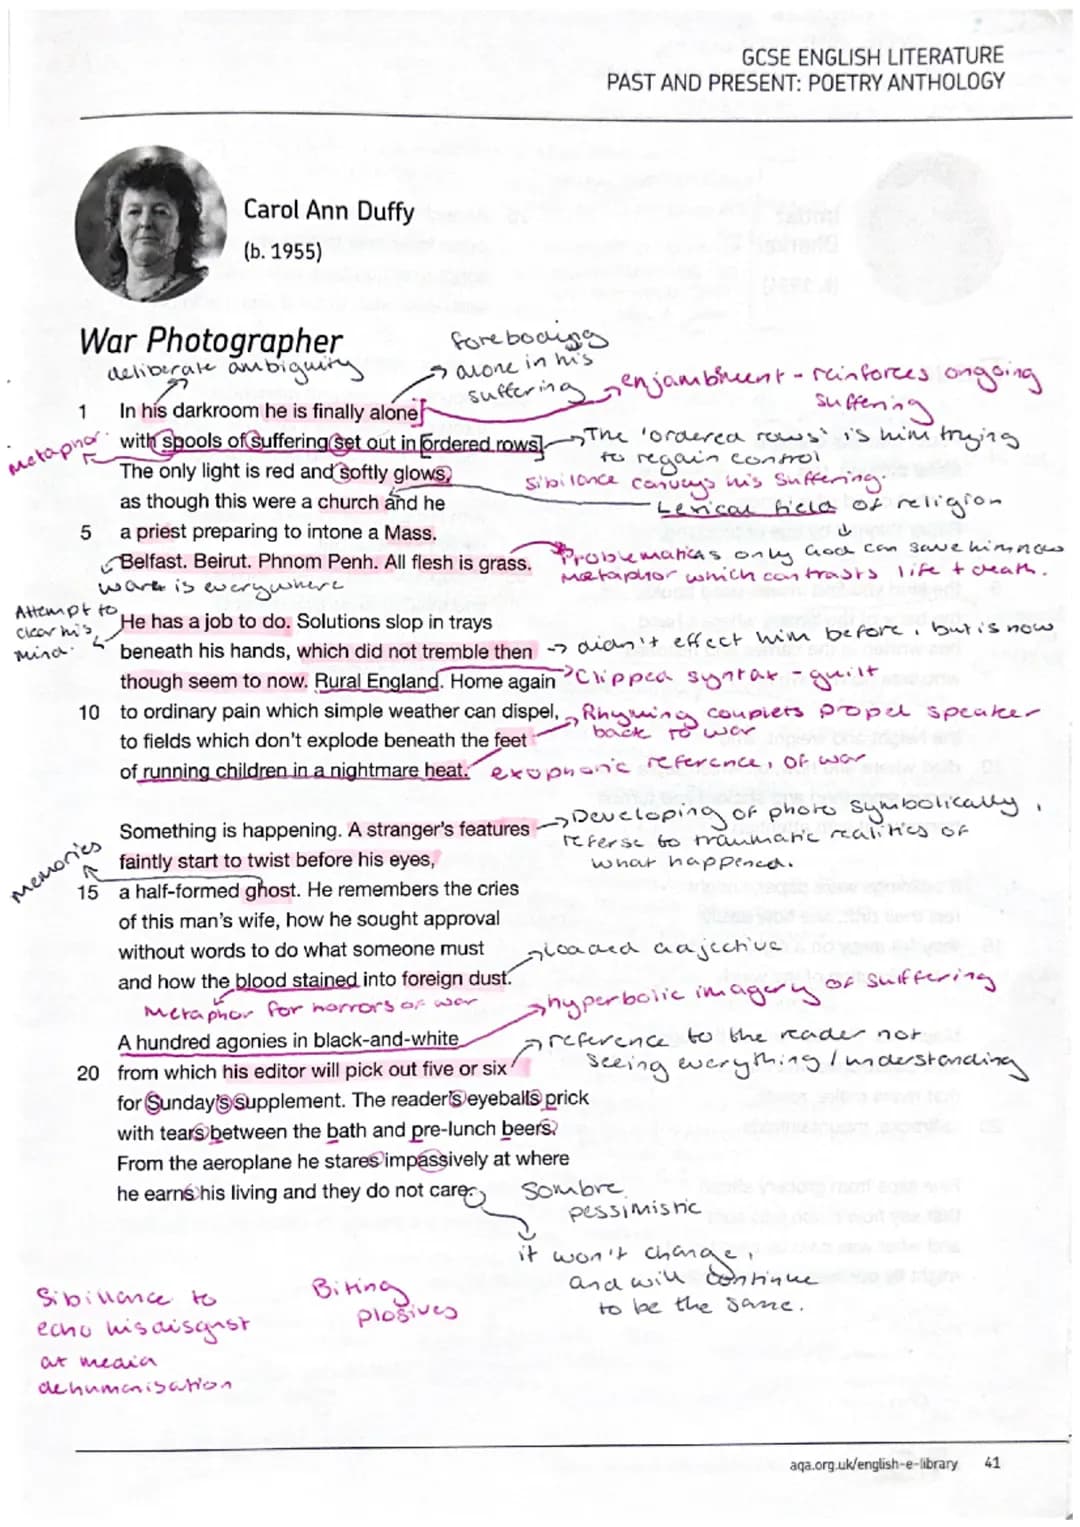 GCSE ENGLISH LITERATURE
PAST AND PRESENT: POETRY ANTHOLOGY
Carol Ann Duffy
(b. 1955)
War Photographer
deliberate ambiguity
foreboding
alone in his
suffering
enjambment - reinforces ongoing
suffering
1 In his darkroom he is finally alone
metaphor
with spools of suffering set out in ordered rows.
The 'ordered rows' is him trying
to regain control
The only light is red and softly glows,
Sibilance conveys his suffering.
as though this were a church and he
Lexical field of religion
5 a priest preparing to intone a Mass.
Belfast. Beirut. Phnom Penh. All flesh is grass.
Problematics only God can save him now
Metaphor which contrasts life + death.
war is everywhere
Attempt to
clear his
mind.
He has a job to do. Solutions slop in trays
beneath his hands, which did not tremble then
didn't effect him before, but is now
though seem to now. Rural England. Home again
Clipped syntax - guilt
10 to ordinary pain which simple weather can dispel,
Rhyming couplets propel speaker
back to war
to fields which don't explode beneath the feet
of running children in a nightmare heat.
exophoric reference, of war
Something is happening. A stranger's features
Developing of photo symbolically,
referse to traumatic realities of
what happened.
faintly start to twist before his eyes,
memories
15 a half-formed ghost. He remembers the cries
of this man's wife, how he sought approval
without words to do what someone must
loaded adjective
and how the blood stained into foreign dust.
Metaphor for horrors of war
hyperbolic imagery of suffering
A hundred agonies in black-and-white
reference to the reader not
seeing everything / understanding
20 from which his editor will pick out five or six
for Sunday's supplement. The reader's eyeballs prick
with tears between the bath and pre-lunch beers.
From the aeroplane he stares impassively at where
he earns his living and they do not care.
Sombre
pessimistic
it won't change,
and will continue
to be the same.
Sibillance to
echo his disgust
at media
dehumanisation
Biting
plosives
aqa.org.uk/english-e-library 41